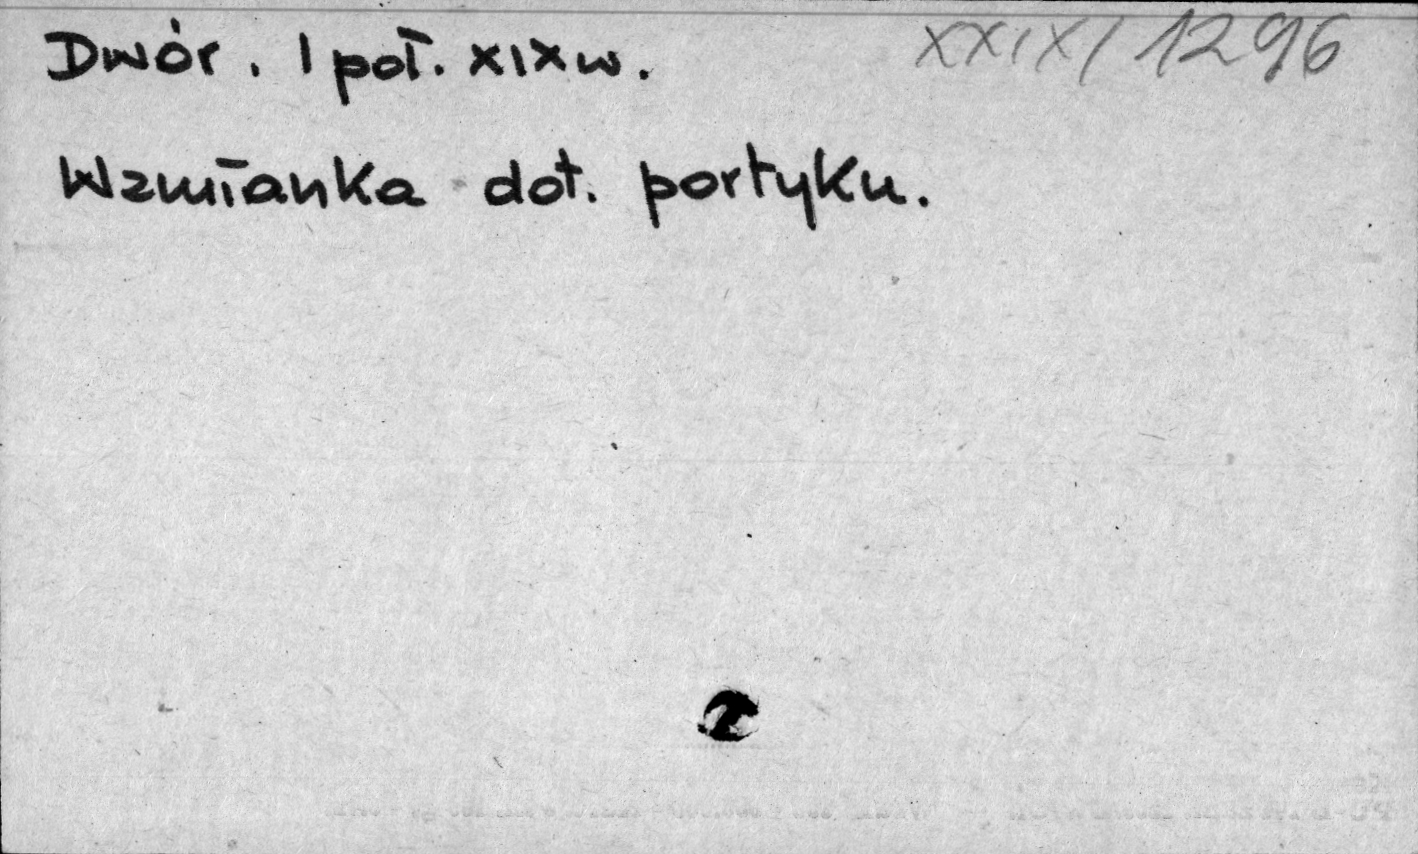 Dwór. I poł. XIX w.
XXIX/1296
Wzmianka dot. portyku.